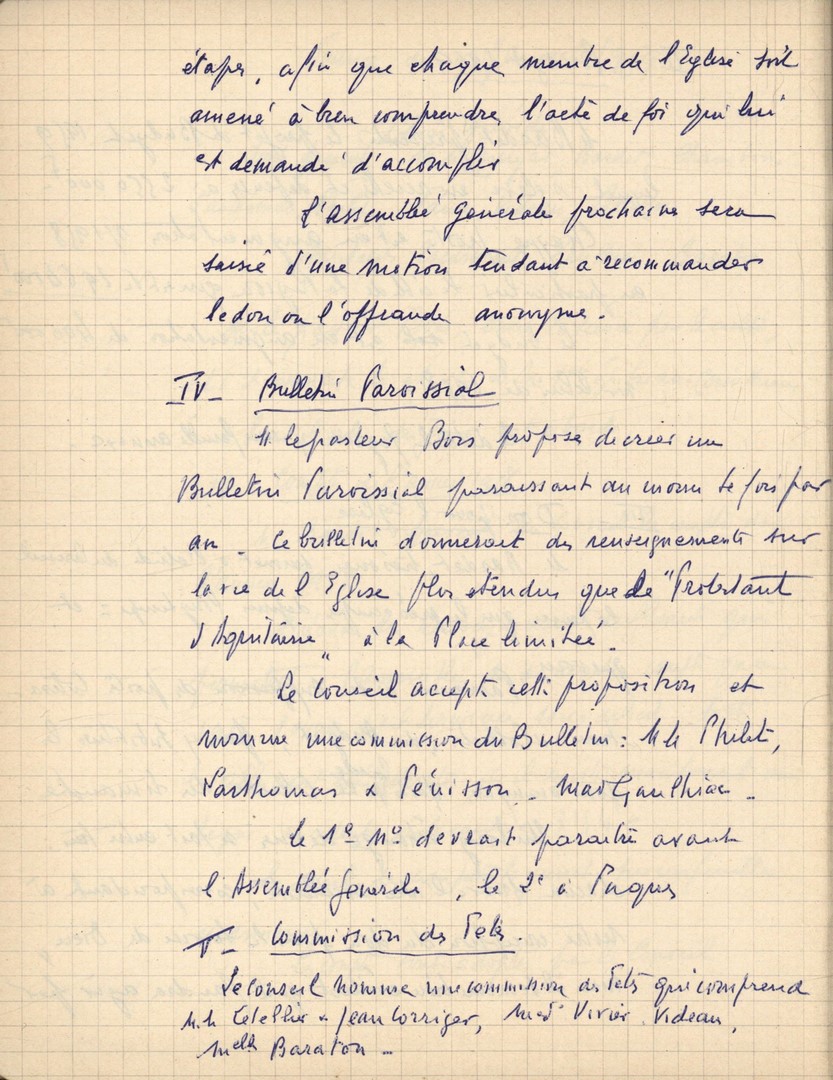 étapes, afin que chaque membre de l'Eglise soit
amené à bien comprendre l'acte de foi qui lui
est demandé d'accomplir
L'Assemblée Générale prochaine sera
saisie d'une motion tendant à recommander
le don ou l'offrande anonyme.
IV - Bulletin Paroissial
M. le pasteur Bois propose de créer un
Bulletin Paroissial paraissant au moins fois par
an. Ce bulletin donnerait des renseignements sur
la vie de l'Eglise plus étendus que le "Protestant
d'Aquitaine" à la Place limitée.
Le Conseil accepte cette proposition et
nomme une commission du Bulletin : MM.
Lasthomas & Pénisson - Mad Gaulhiac.
Le 1e No devrait paraître avant
l'Assemblée Générale, le 2e à Pâques
V - Commission des Fêtes.
Le conseil nomme une commission des Fêtes qui comprend
M.M. Letellier & Jean Corriger, Mmes Vivier, Videau,
Melle Baraton -